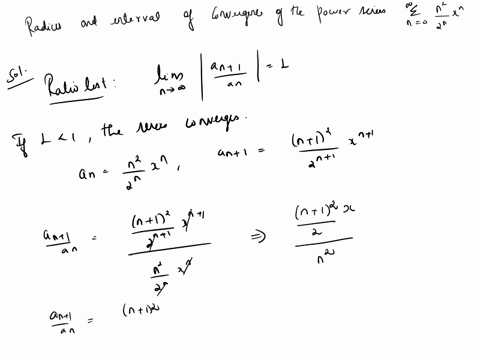 Radius and interval of Convergence of the power series ∑_{n=0}^{∞} n²/2ⁿ xⁿ
Sol.
Ratio test: lim_{n→∞} |a_{n+1}/a_n| = L
If L < 1, the series converges.
a_n = n²/2ⁿ xⁿ, a_{n+1} = (n+1)²/2^{n+1} x^{n+1}
a_{n+1}/a_n = ((n+1)²/2^{n+1} x^{n+1})/(n²/2ⁿ xⁿ) ⇒ ((n+1)²/2 x)/n²
a_{n+1}/a_n = (n+1)²